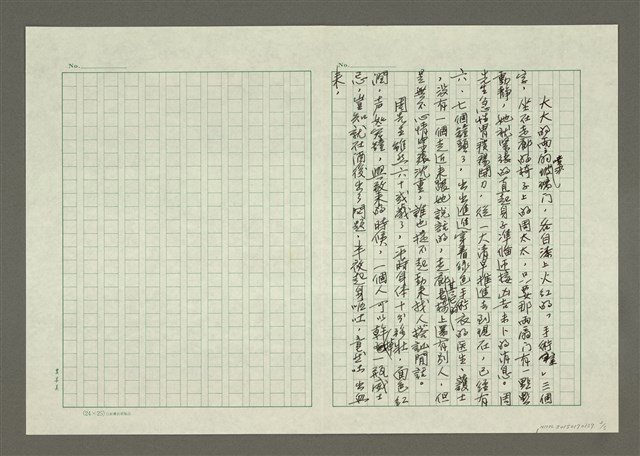 No.
大大的兩扇玻璃門，各自漆上火紅的「手術室」三個
字，坐在走廊的椅子上的周太太，只要那兩扇門有一點點
動靜，她就緊張的直起身子準備迎接凶吉未卜的消息。周
先生急性胃穿孔開刀，從一大清早推進去到現在，已經有
六、七個鐘頭了，出出進進穿著綠色手術衣的醫生、護士
，沒有一個走近來跟她說話的，走廊長椅上還有別人，但
是無不心情沈重，誰也提不起勁來找人搭訕閒話。
周先生雖然六十多歲了，平時身体十分強壯，面色紅
潤，声如洪鐘，興致來的時候，一個人可以幹掉一瓶威士
忌，豈知就在酒後出了問題，半夜起身嘔吐，竟然吐出血
來，
No.
24×25